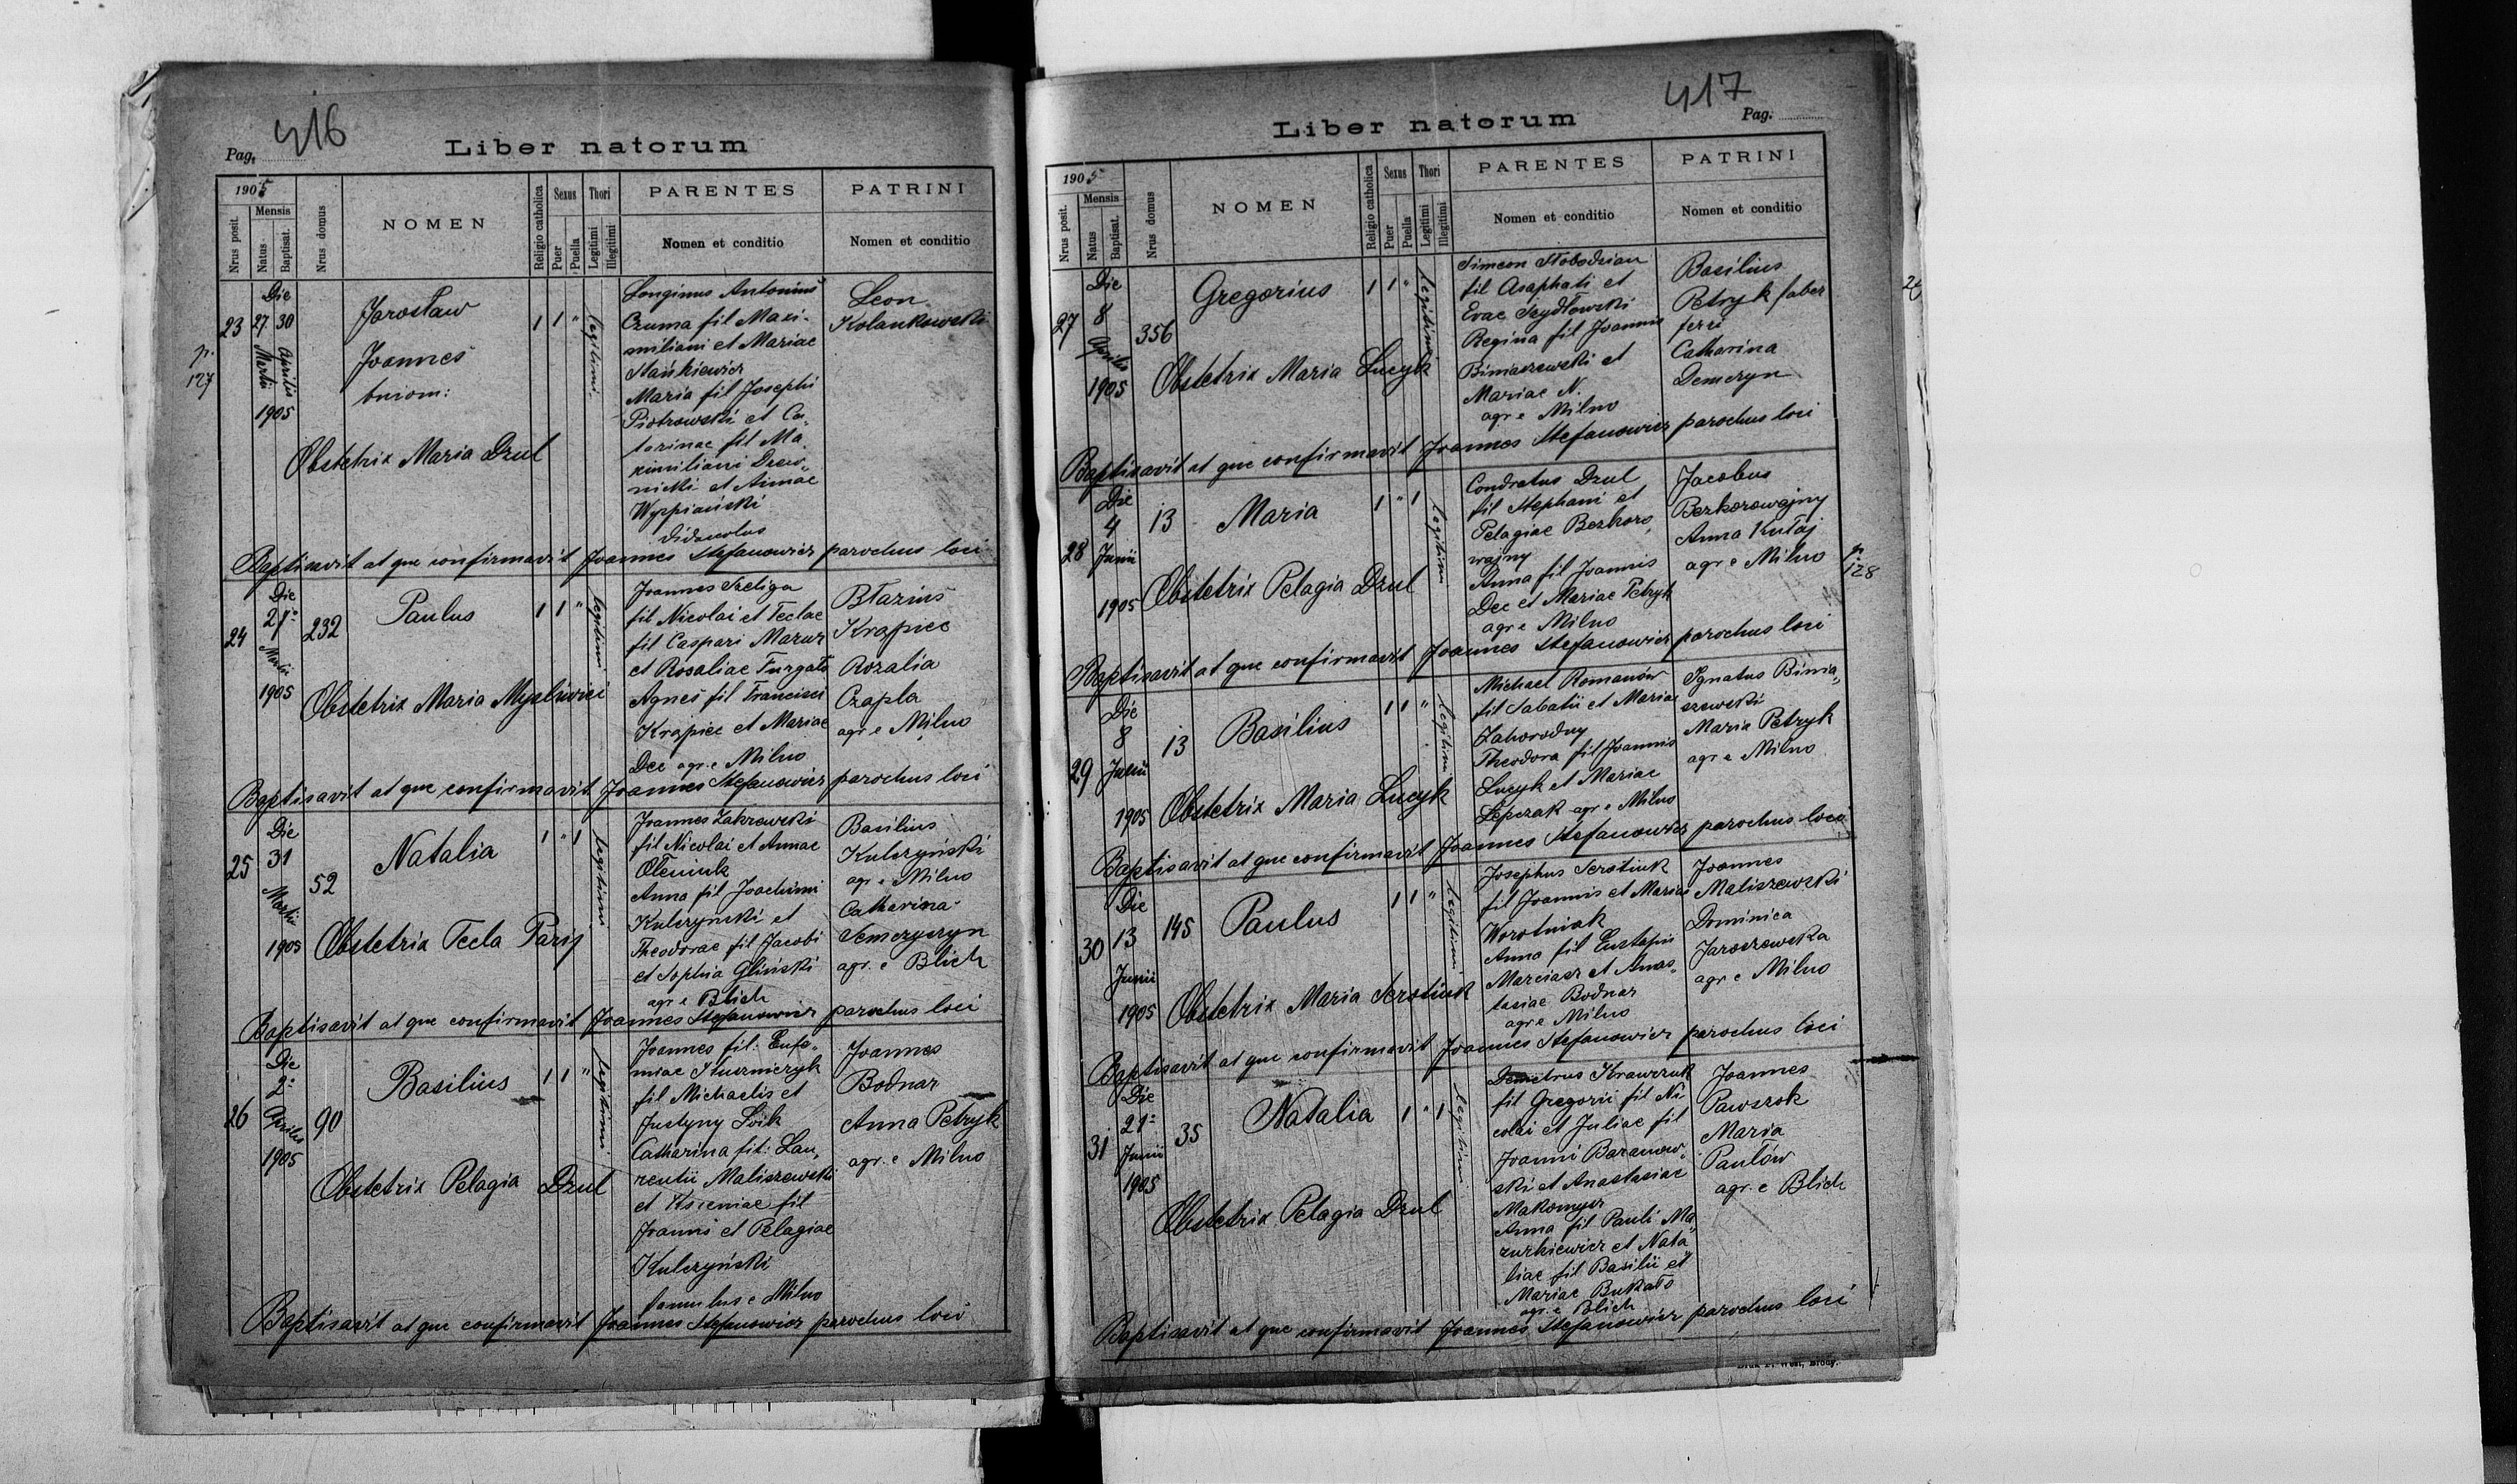 416
Pag.
Liber natorum
1905
Nrus posit.
Mensis
Natus
Baptisat.
Nrus domus
NOMEN
Religio catholica
Sexus
Puer
Puella
Thori
Legitimi
Illegitimi
PARENTES
Nomen et conditio
PATRINI
Nomen et conditio
p. 127
23
Die
27 30
Martii Aprilis
1905
Jarosław
Joannes
buiom:
1 1 "
legitimi
Longinus Antonius
Czuma fil Maxi-
miliani et Mariae
Stańkiewicz
Maria fil Josephi
Piotrowski et Ca-
tarinae fil Ma-
ximiliani Drew-
nicki et Annae
Wyspiański
Leon
Kolankowski
Obstetrix Maria Dzul
Baptisavit at que confirmavit Joannes Stefanowicz parochus loci
24
Die
27
Martii
1905
232
Paulus
1 1 "
legitimi
Joannes Szeliga
fil Nicolai et Teclae
fil Caspari Mazur
et Rosaliae Furgało
Agnes fil Francisci
Krąpiec et Mariae
Dec agr e Milno
Błazius
Krąpiec
Rozalia
Czapla
agr e Milno
Obstetrix Maria Myśliwiei
Baptisavit at que confirmavit Joannes Stefanowicz parochus loci
25
Die
31
Martii
1905
52
Natalia
1 " 1
legitimi
Joannes Zakrzewski
fil Nicolai et Annae
Oleniuk
Anna fil Joachimi
Kulczyński et
Theodorae fil Jacobi
et Sophia Gliński
agr e Blich
Basilius
Kulczyński
agr e Milno
Catharina
Semeryczyn
agr. e Blich
Obstetrix Tecla Parij
Baptisavit at que confirmavit Joannes Stefanowicz parochus loci
26
Die
2
Aprilis
1905
90
Basilius
1 1 "
legitimi
Joannes fil: Eufe-
miae Kusznieryk
fil Michaelis et
Justyny Soik
Catharina fil: Lau-
rentii Maliszewski
et Kseniae fil
Joannis et Pelagiae
Kulczyński
famulus e Milno
Joannes
Bodnar
Anna Petryk
agr. e Milno
Obstetrix Pelagia Dzul
Baptisavit at que confirmavit Joannes Stefanowicz parochus loci
417
Pag.
Liber natorum
1905
Nrus posit.
Mensis
Natus
Baptisat.
Nrus domus
NOMEN
Religio catholica
Sexus
Puer
Puella
Thori
Legitimi
Illegitimi
PARENTES
Nomen et conditio
PATRINI
Nomen et conditio
27
Die
8
Aprilis
1905
356
Gregorius
1 1 "
legitimi
Simeon Słobodzian
fil Asaphati et
Evae Szydłowski
Regina fil Joannis
Biniaszewski et
Mariae N.
agr e Milno
Basilius
Petryk faber
ferri
Catharina
Demczyn
Obstetrix Maria Łucyk
Baptisavit at que confirmavit Joannes Stefanowicz parochus loci
28
Die
4
Junii
1905
13
Maria
1 " 1
legitimi
Condratus Dzul
fil Stephani et
Pelagiae Bezkoro-
wajny
Anna fil Joannis
Dec et Mariae Petryk
agr e Milno
Jacobus
Bezkorowajny
Anna Kułaj
agr e Milno
p. 128
Obstetrix Pelagia Dzul
Baptisavit at que confirmavit Joannes Stefanowicz parochus loci
29
Die
8
Junii
1905
13
Basilius
1 1 "
legitimi
Michael Romanów
fil Sabatii et Mariae
Zahorodny
Theodora fil Joannis
Łucyk et Mariae
Łepczak agr e Milno
Ignatus Binia-
szewski
Maria Petryk
agr e Milno
Obstetrix Maria Łucyk
Baptisavit at que confirmavit Joannes Stefanowicz parochus loci
30
Die
13
Junii
1905
145
Paulus
1 1 "
legitimi
Josephus Serotiuk
fil Joannis et Mariae
Worotniak
Anna fil Eustafii
Marciasz et Anas-
tasiae Bodnar
agr e Milno
Joannes
Maliszewski
Dominica
Jaroszewska
agr e Milno
Obstetrix Maria Serotiuk
Baptisavit at que confirmavit Joannes Stefanowicz parochus loci
31
Die
21
Junii
1905
35
Natalia
1 " 1
legitimi
Demetrus Krawczuk
fil Gregorii fil Ni
colai et Juliae fil
Joanni Baranow-
ski et Anastasiae
Makomyer
Anna fil Pauli Ma
zurkiewicz et Nata
liae fil Basilii et
Mariae Bukało
agr. e Blich
Joannes
Pawszok
Maria
Pawłów
agr. e Blich
Obstetrix Pelagia Dzul
Baptisavit at que confirmavit Joannes Stefanowicz parochus loci
Druk F. West, Brody.